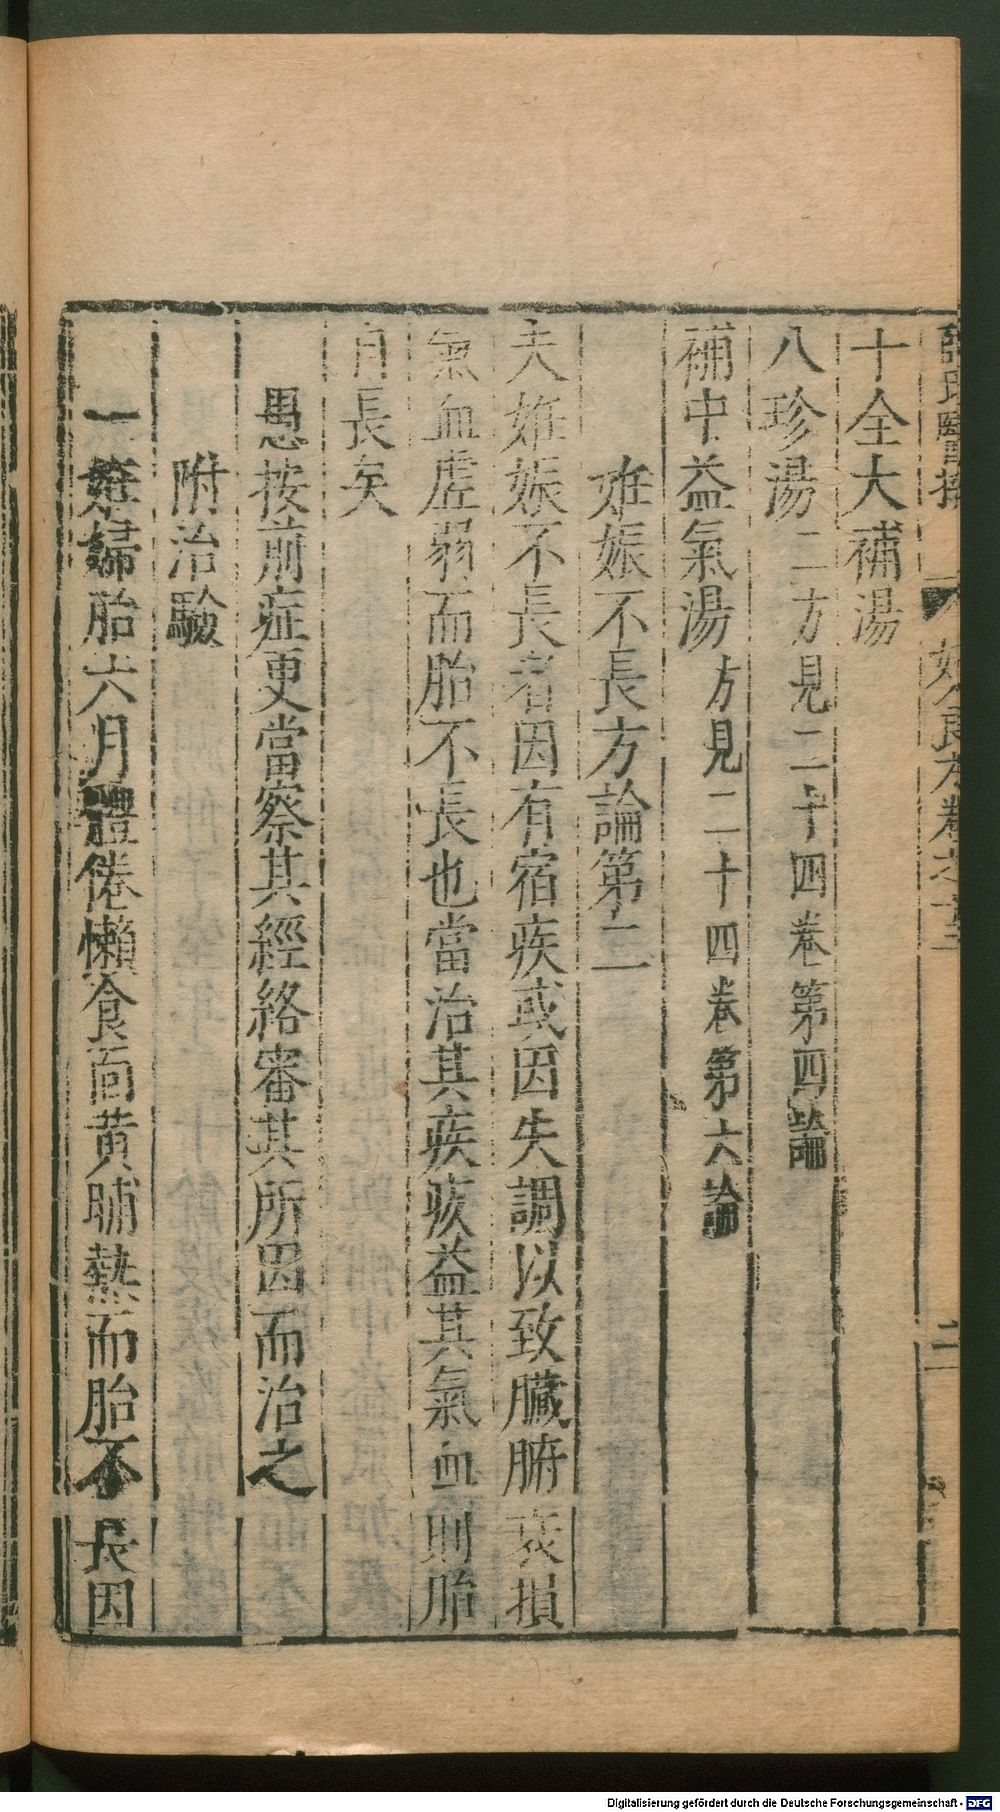 薛氏醫按 婦人良方卷之十三 二
十全大補湯
八珍湯二方見二十四卷第四論
補中益氣湯方見二十四卷第六論
妊娠不長方論第二
夫妊娠不長者因有宿疾或因失調以致臟腑衰損
氣血虛弱而胎不長也當治其疾疢益其氣血則胎
自長矣
愚按前症更當察其經絡審其所因而治之
附治驗
一妊婦胎六月體倦懶食面黃晡熱而胎不長因
Digitalisierung gefördert durch die Deutsche Forschungsgemeinschaft - DFG